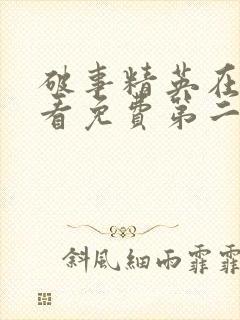 破事精英在
看免費第二
斜風細雨霏霏